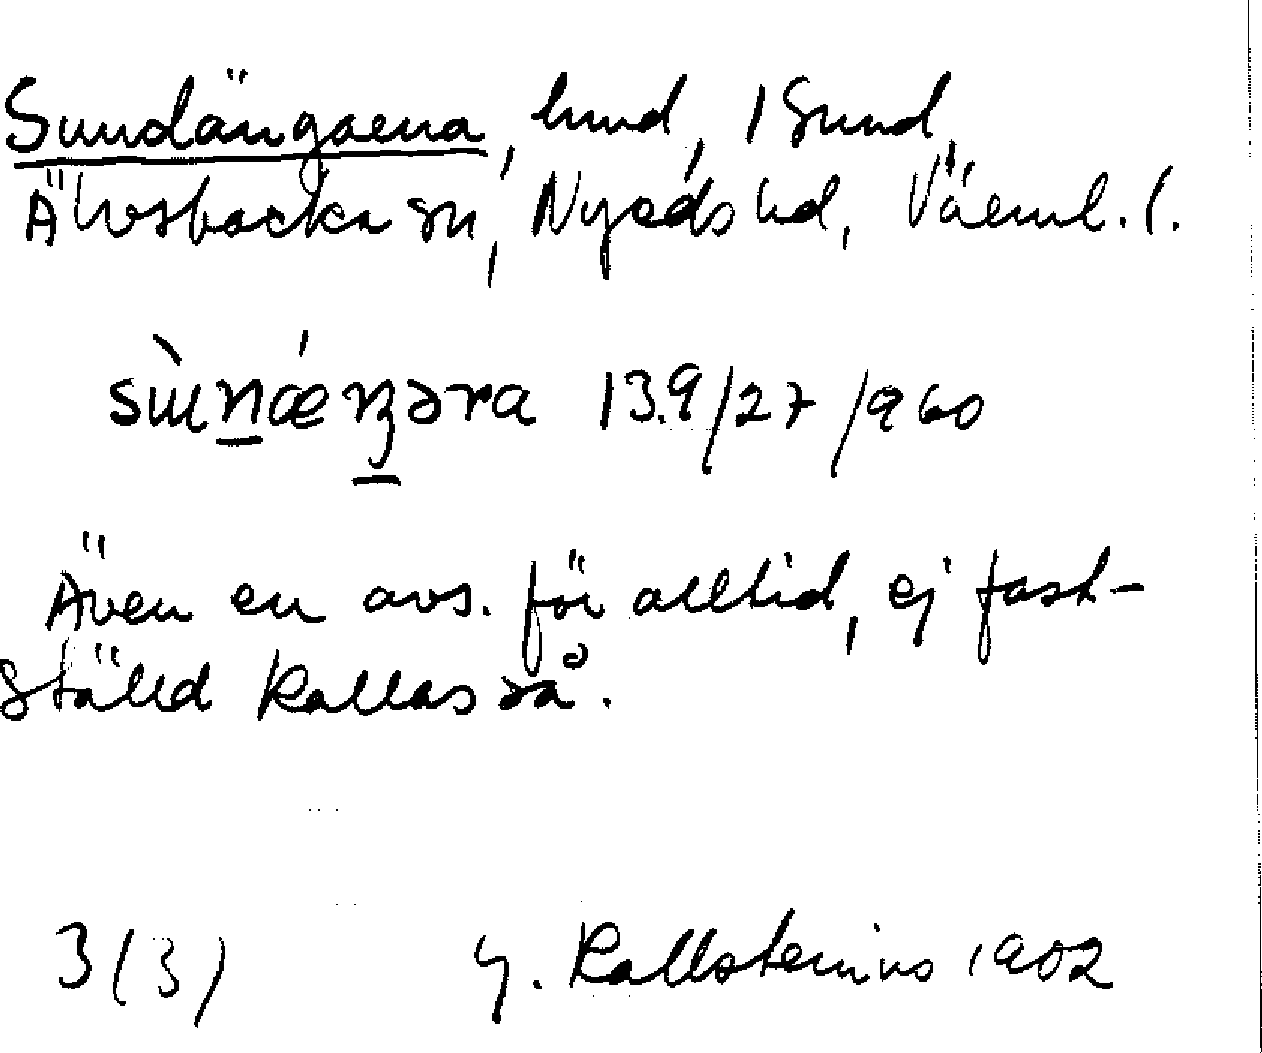 Sundängarna, hmd, 1 Sund,
Älvsbacka sn, Nyeds hd, Värml. l.
sùn̠ǽŋ̠əra 139/27/960
Även en avs. för alltid, ej fast-
ställd kallas så.
3(3) G. Kallstenius 1902